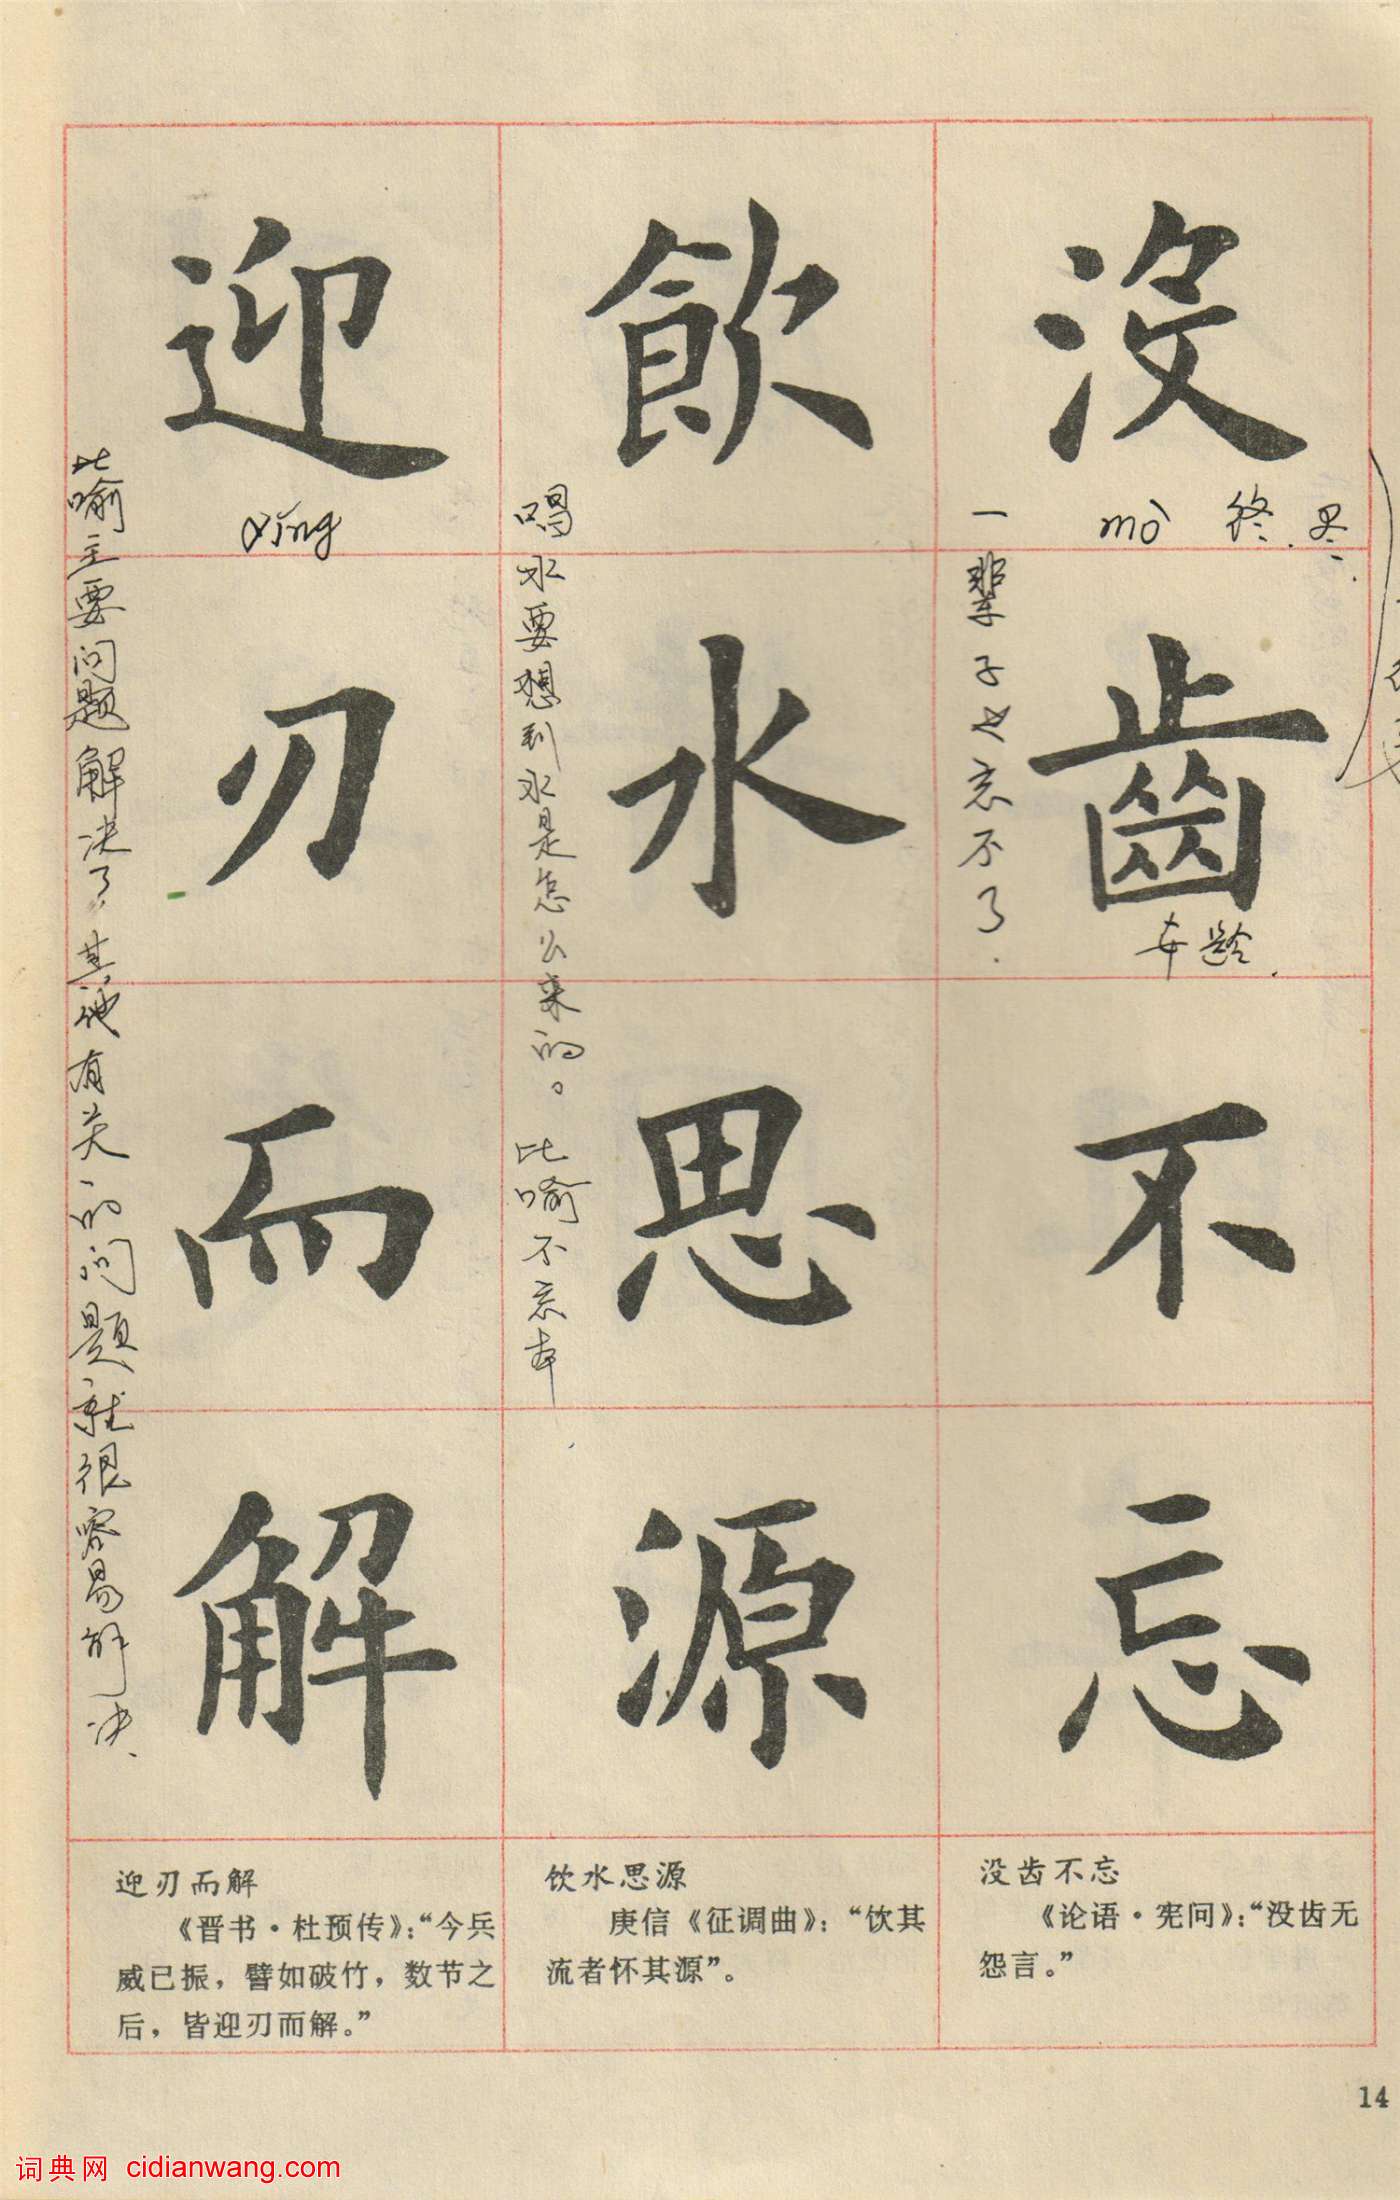 没齒不忘
mò 终.尽.
年龄.
一辈子也忘不了.
飲水思源
喝水要想到水是怎么来的。比喻不忘本
迎刃而解
yíng
比喻主要问题解决了,其他有关的问题就很容易解决.
没齿不忘
《论语·宪问》:“没齿无
怨言。”
饮水思源
庚信《征调曲》:“饮其
流者怀其源”。
迎刃而解
《晋书·杜预传》:“今兵
威已振，譬如破竹，数节之
后，皆迎刃而解。”
14
词典网 cidianwang.com